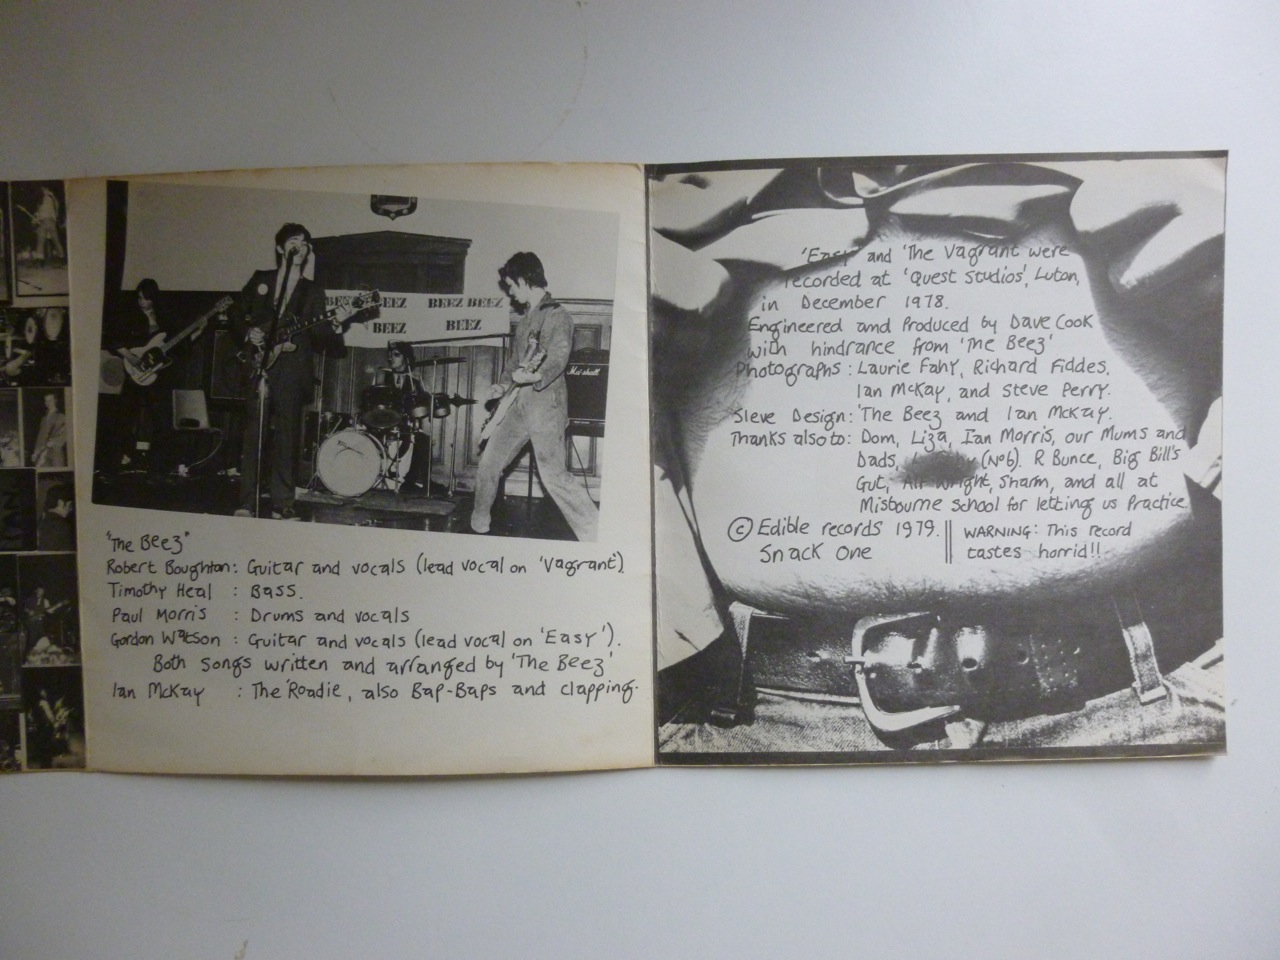 BEEZ BEEZ BEEZ BEEZ
BEEZ BEEZ
Marshall
"The Beez"
Robert Boughton: Guitar and vocals (lead vocal on 'Vagrant')
Timothy Heal : Bass.
Paul Morris : Drums and vocals
Gordon Watson : Guitar and vocals (lead vocal on 'Easy').
Both songs written and arranged by 'The Beez'
Ian McKay : The 'Roadie, also Bap-Baps and clapping.
'Easy' and 'The Vagrant were
recorded at 'Quest Studios', Luton,
in December 1978.
Engineered and Produced by Dave Cook
with hindrance from 'The Beez'
Photographs : Laurie Fahy, Richard Fiddes,
Ian McKay, and Steve Perry.
Sleve Design : 'The Beez and Ian McKay.
Thanks also to : Dom, Liza, Ian Morris, our Mums and
Dads, (No6). R Bunce, Big Bill's
Gut, Alf Wright, Sharm, and all at
Misbourne School for letting us Practice
© Edible records 1979.
Snack One
WARNING: This record
tastes horrid!!